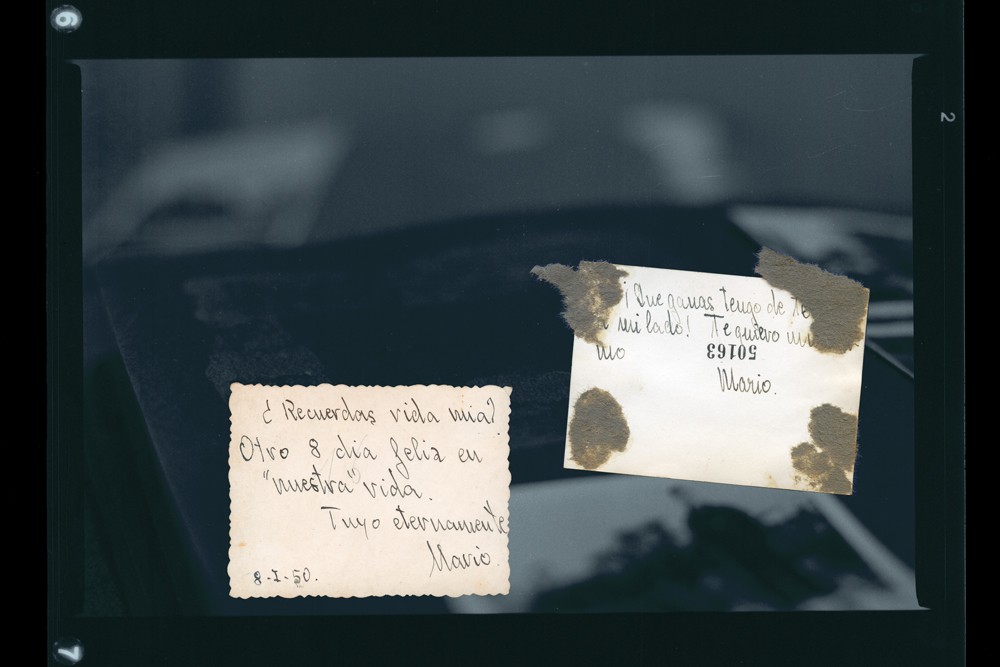 6
2
¿Recuerdas vida mia?
Otro 8 día feliz en
"nuestra" vida.
Tuyo eternamente
Mario.
8-I-50.
¡Que ganas tengo de te
a mi lado! Te quiero
mo
50163
Mario.
7